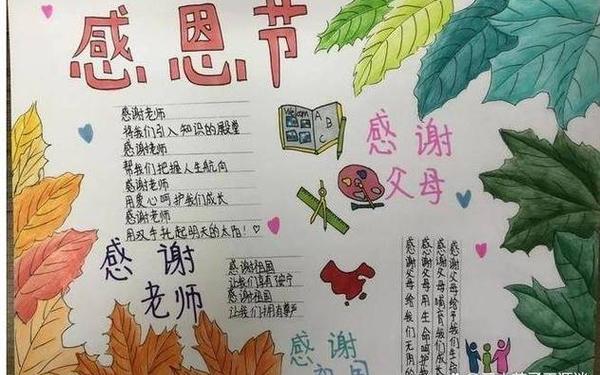 感恩节
感谢老师
我们引入知识的殿堂
感谢老师
帮我们把握人生航向
感谢老师
用爱心呵护我们成长
感谢老师
用双手托起明天的太阳!
A
B
C
感谢
父母
感谢
老师
感谢祖国
让我们享有安宁
感谢祖国
让我们拥有尊严
感谢父母给予我们生
感谢父母哺育我们成
感谢父母用生命呵护
感谢父母给我们无
感谢